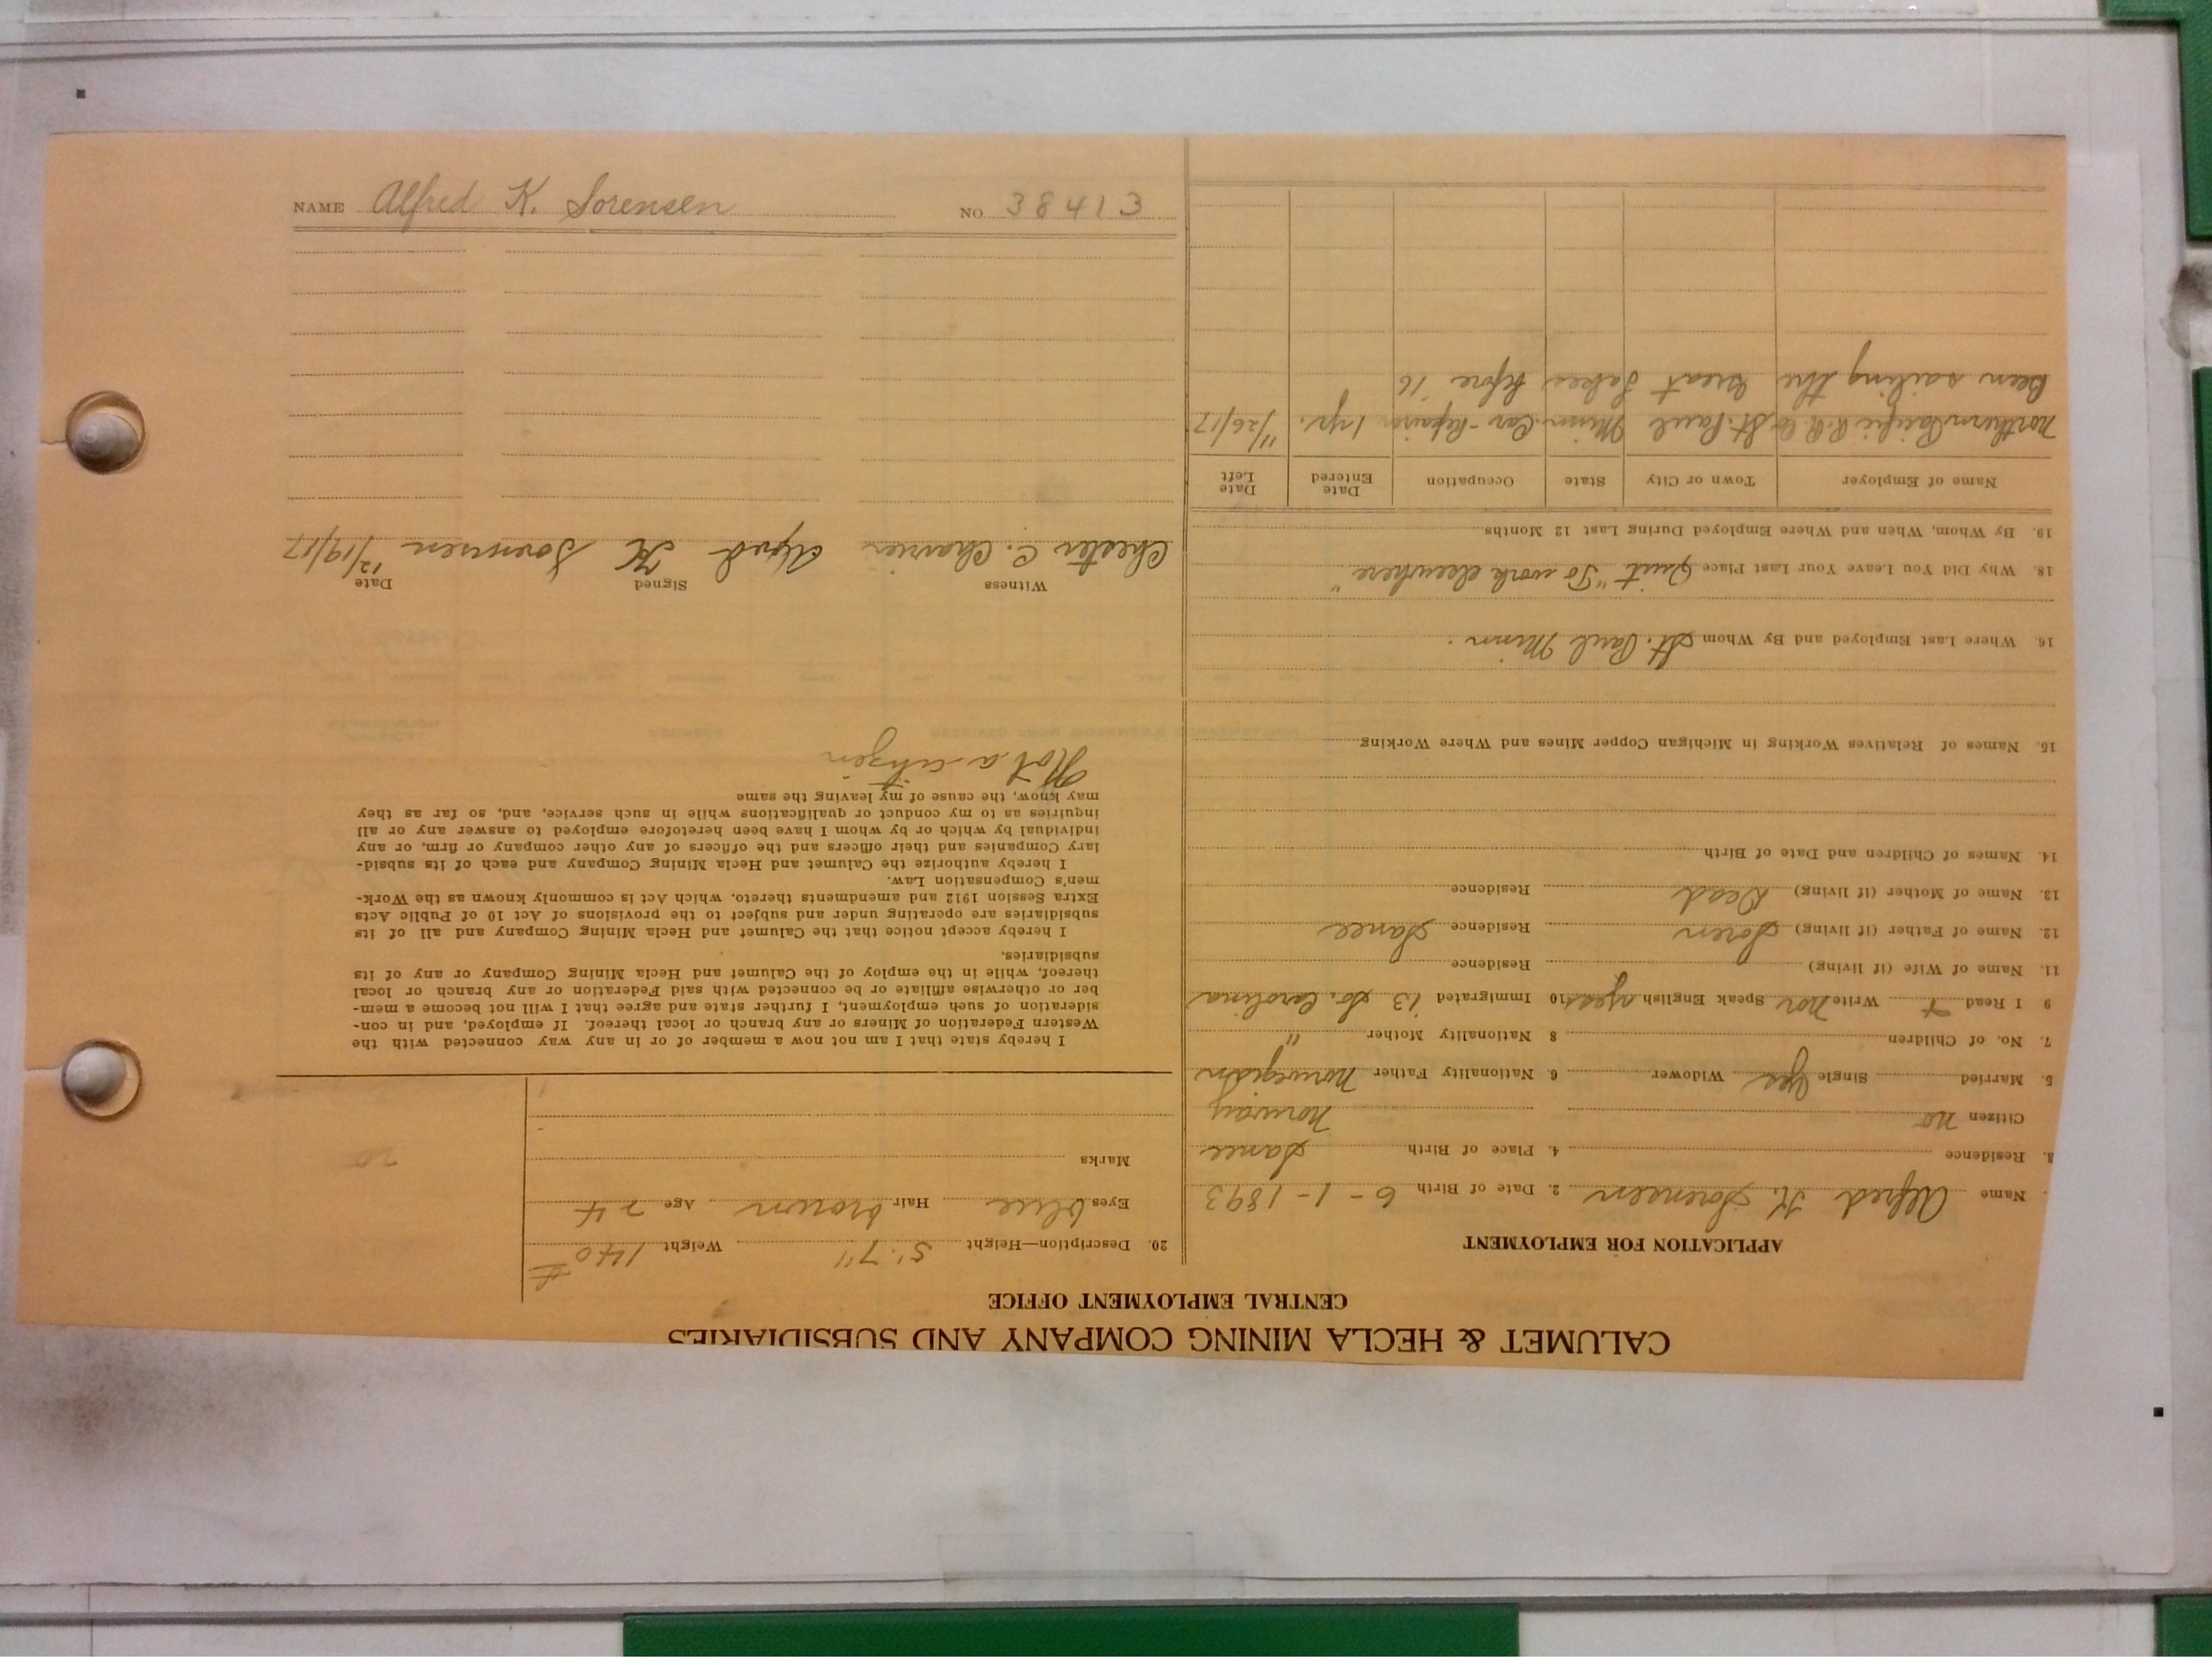 CALUMET & HECLA MINING COMPANY AND SUBSIDIARIES
CENTRAL EMPLOYMENT OFFICE
APPLICATION FOR EMPLOYMENT
Name Alfred K. Sorensen 2. Date of Birth 6-1-1893
3. Residence 4. Place of Birth
Citizen no Norway
5. Married Single Yes Widower 6. Nationality Father Norwegian
7. No. of Children 8 Nationality Mother "
9 I Read + Write Nor Speak English yes 10 Immigrated '13 So. Carolina
11. Name of Wife (if living) Residence
12. Name of Father (if living) Soren Residence
13. Name of Mother (if living) Dead Residence
14. Names of Children and Date of Birth
15. Names of Relatives Working in Michigan Copper Mines and Where Working
16. Where Last Employed and By Whom St. Paul Minn.
18. Why Did You Leave Your Last Place Quit "To work elsewhere"
19. By Whom, When and Where Employed During Last 12 Months
Name of Employer Town or City State Occupation Date Entered Date Left
Northern Pacific R.R. Co St. Paul Minn. Car-Repairer 1 yr. 11/26/17
Been sailing the Great Lakes before '16
20. Description—Height 5' 7" Weight 140 #
Eyes blue Hair brown Age 24
Marks
I hereby state that I am not now a member of or in any way connected with the
Western Federation of Miners or any branch or local thereof. If employed, and in con-
sideration of such employment, I further state and agree that I will not become a mem-
ber or otherwise affiliate or be connected with said Federation or any branch or local
thereof, while in the employ of the Calumet and Hecla Mining Company or any of its
subsidiaries.
I hereby accept notice that the Calumet and Hecla Mining Company and all of its
subsidiaries are operating under and subject to the provisions of Act 10 of Public Acts
Extra Session 1912 and amendments thereto, which Act is commonly known as the Work-
men's Compensation Law.
I hereby authorize the Calumet and Hecla Mining Company and each of its subsid-
iary Companies and their officers and the officers of any other company or firm, or any
individual by which or by whom I have been heretofore employed to answer any or all
inquiries as to my conduct or qualifications while in such service, and, so far as they
may know, the cause of my leaving the same
Not a citizen
Witness Signed Date
Chester C. Alfred K Sorensen 12/19/17
NAME Alfred K. Sorensen NO 38413